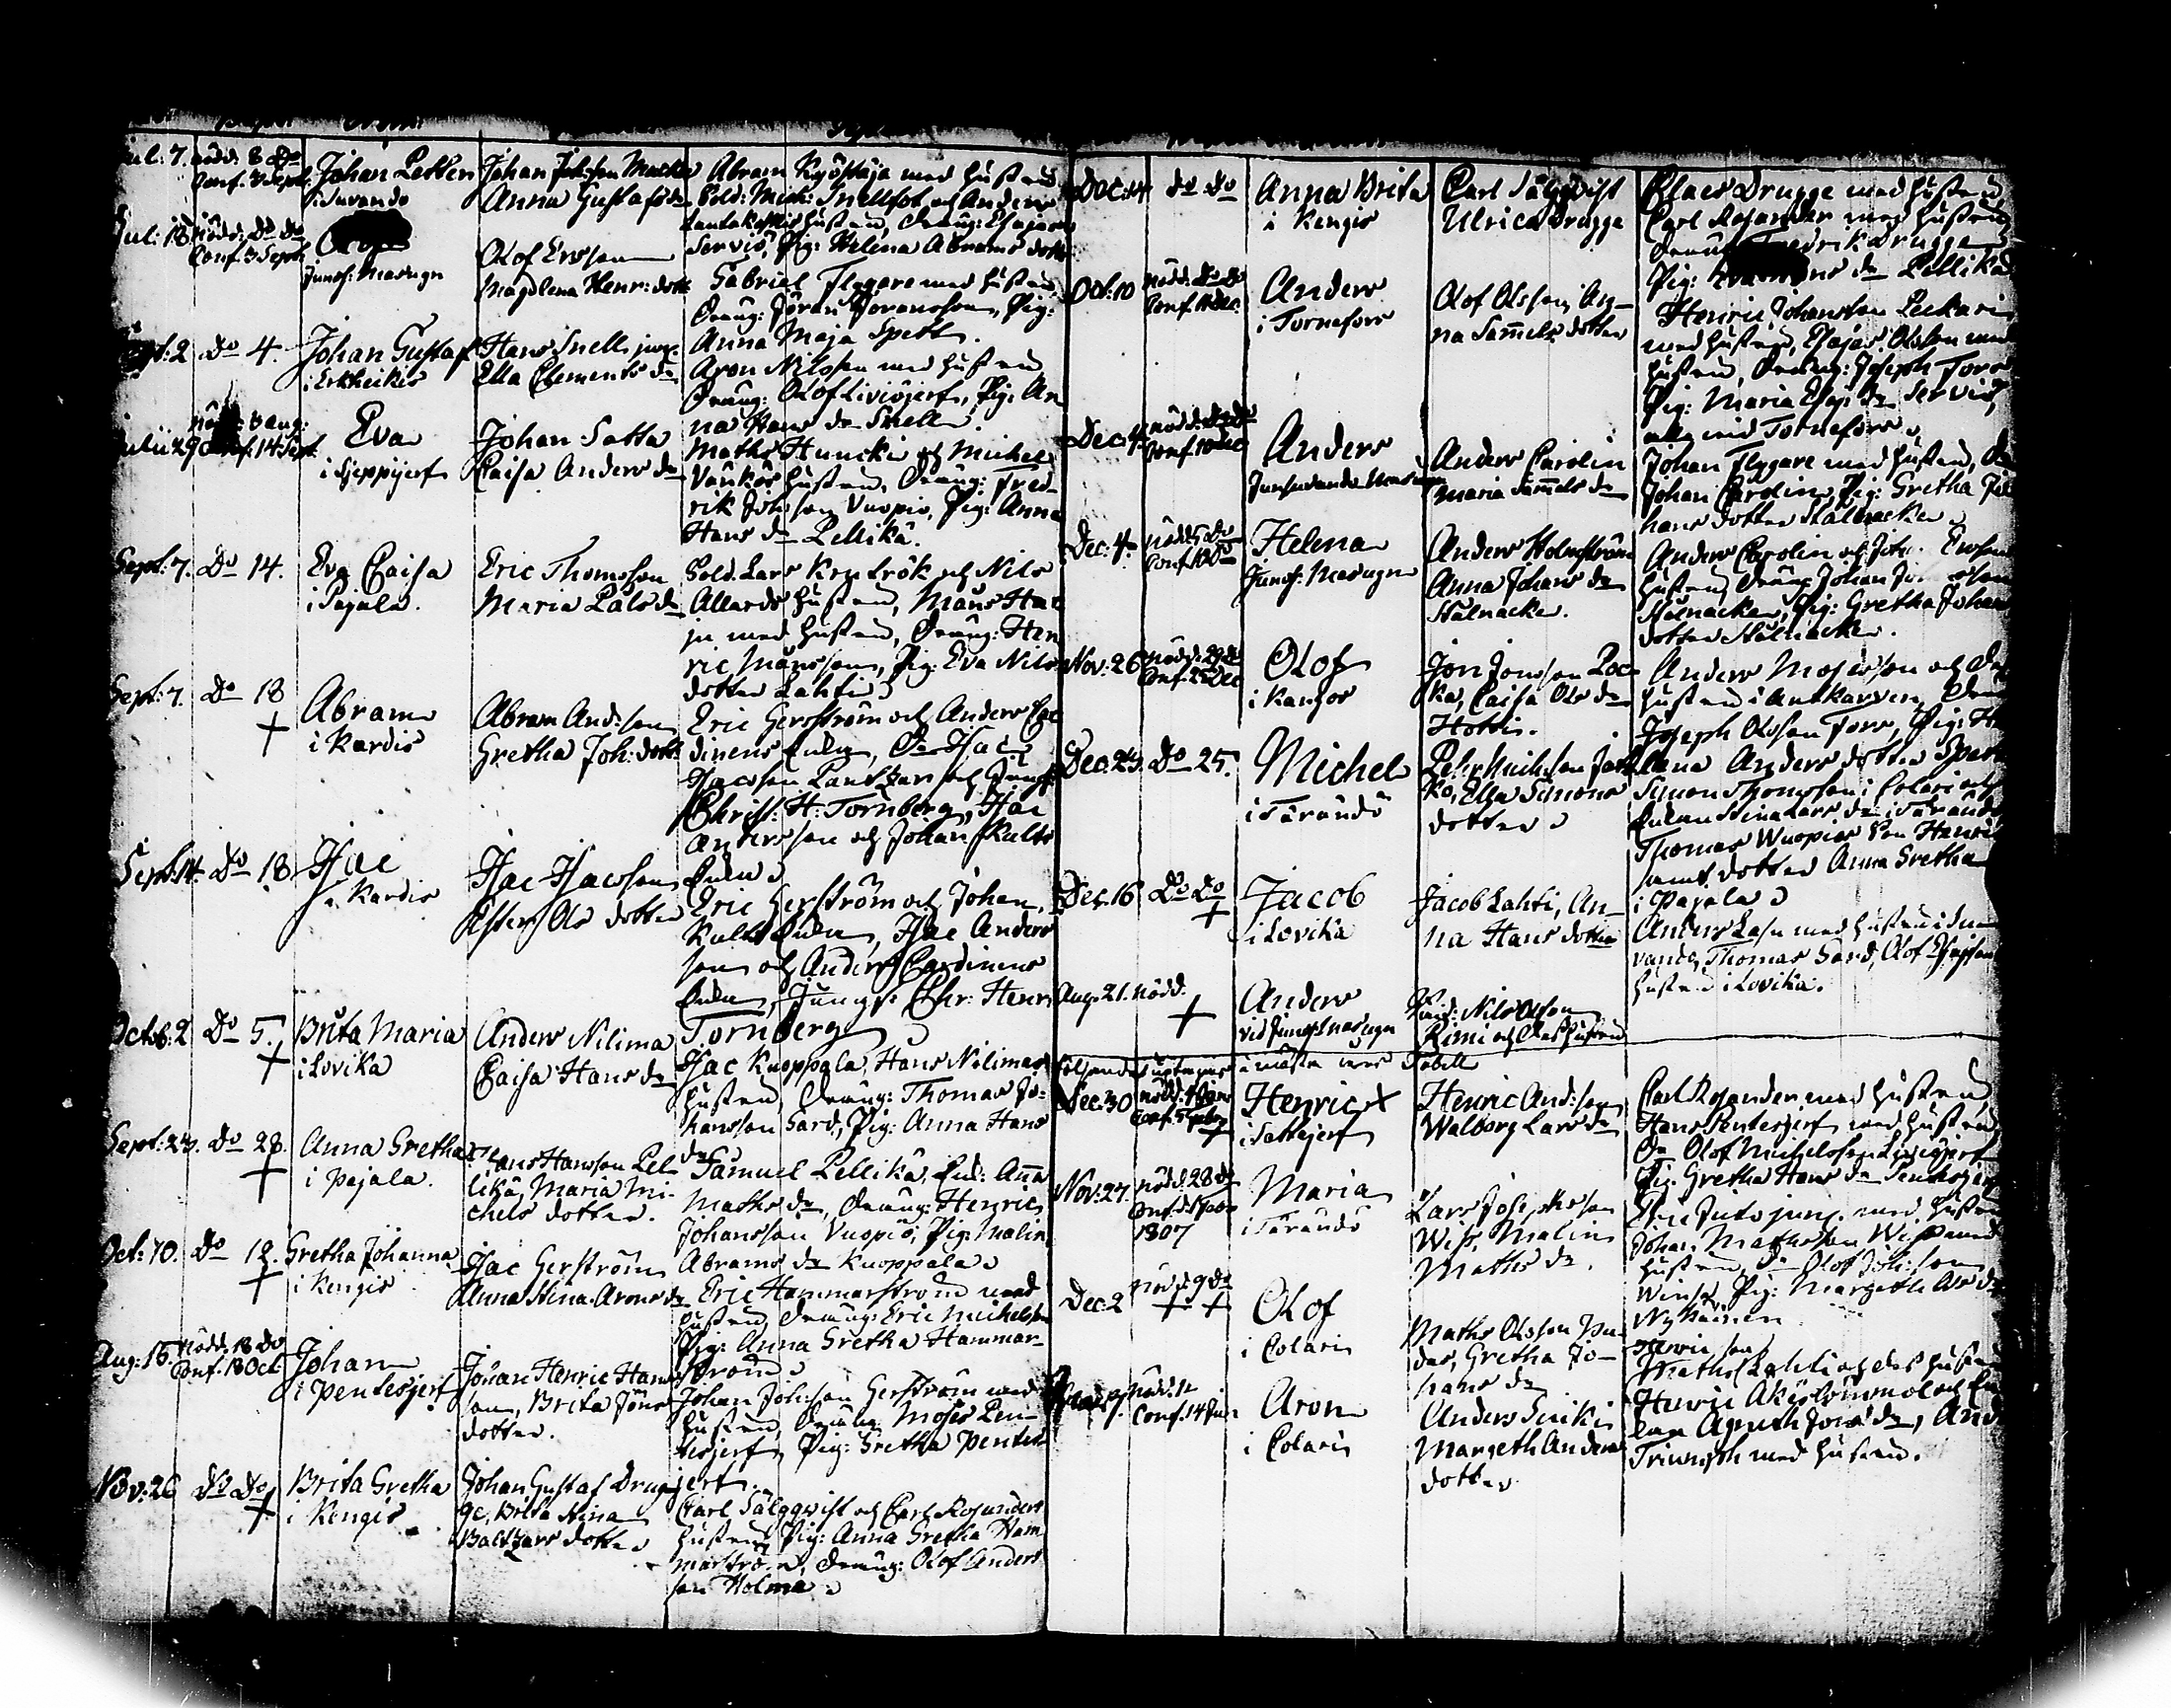 Jul: 7. nödd: 8 do
Conf. 3 Sept.
Johan Petter
i Juvando
Johan Johsson
Anna Gustafs dr
Abram Kyöstäja med hustru
Sold: Mich: Snellfot och Anders
Lantakoskis hustru, Dräng: Esajas
Serviö, Pig: Helena Abrams dotter
Jul: 18 nödd: do do
Conf. 3 Sept.
Olof
Junos: Masugn
Olof Ersson
Magdlena Henr: dott
Gabriel Flygare med hustru
Dräng: Jöran Joransson, Pig:
Anna Maja Spett.
Sept: 2 do 4.
Johan Gustaf
i Erkheikis
Hans Snell junr.
Ella Clements dr
Aron Nilsson med hustru
Dräng: Olof Liviöjerf, Pig: An
na Hans dr Snell.
Julii 29 nödd: 3 aug:
Conf. 14 Sept
Eva
i Sjeppijerf
Johan Satta
Caisa Anders dr
Maths Huncki och Michel
hustru, Dräng: Fred-
rik Johsson Vuopio, Pig: Anna
Hans dr Pellikä.
Sept: 7. do 14.
Eva Caisa
i Pajala.
Eric Thomsson
Maria Påls dr
Sold. Lars Krutrök och Nils
Allards hustru, Måns Har
ju med hustru, Dräng: Hen
ric Månsson, Pig: Eva Nils
dotter Lahti
Sept: 7. do 18
Abram
i Kardis
Abram And:son
Gretha Joh: dott:
Eric Gerström och Anders Car
dinens Enka, Dr Isac
Isacsson Lantzar och Jungf
Christ: H: Tornberg, Isac
Andersson och Johan Kults
Enka
Sept: 14. do 18
Isac
i Kardis
Isac Isacsson
Ester Ols dotter
Eric Gerström och Johan
Kults Enka, Isac Anders
son och Anders Cardinens
Enka, Jungf: Chr: Henr:
Tornberg
Octob: 2 do 5.
Brita Maria
i Lovika
Anders Nilima
Caisa Hans dr
Isac Kuoppala, Hans Nilimas
hustru, Dräng: Thomas Jo-
hansson Sard, Pig: Anna Hans
dr
Sept: 23. do 28.
Anna Gretha
i Pajala.
Hans Hansson Pel
likä, Maria Mi-
chels dotter.
Samuel Pellikä, Enk: Anna
Maths dr, Dräng: Henric
Johansson Vuopio, Pig: Malin
Abrams dr Kuoppala
Oct: 10. do 12.
Gretha Johanna
i Kengis
Isac Gerström
Anna Stina Arons dr
Eric Hammarström med
hustru, Dräng: Eric Michelsson
Pig: Anna Gretha Hammar-
ström
Aug: 15. nödd: 18 do
Conf. 18 Oct
Johan
i Pentesjerf
Johan Henric Hans
son, Brita Jöns
dotter.
Johan Johsson Gerström med
hustru, Dräng: Moses Pen-
tesjerf, Pig: Gretha Pentes
jerf.
Nov: 26 do do
Brita Gretha
i Kengis
Johan Gustaf Drug
ge, Brita Stina
Baltzars dotter
Carl Sälgqvist och Carl Rosanders
hustru, Pig: Anna Gretha Ham
marström, Dräng: Olof Anders
son Holma
Dec: 14 do do
Anna Brita
i Kengis
Carl Sälgqvist
Ulrica Drugge
Claes Drugge med hustru
Carl Rosander med hustru
Dräng: Fredrik Drugge
Pig: dr Pellikä
Oct: 10 nödd: do do
Conf. 11 Dec.
Anders
i Tornefors
Olof Olsson, An-
na Samuels dotter
Henric Johansson Peckari
med hustru, Esajas Olsson med
hustru, Dräng: Joseph Tors
Pig: Maria Esaj: dr Serviö,
alla vid Tornefors.
Dec: 4. nödd: do do
Conf. 10 Dec
Anders
Junosuando Masugn
Anders Carolin
Maria Samuels dr
Johan Flygare med hustru, Dr
Johan Carolin, Pig: Gretha Jo
hans dotter Stålnacke
Dec: 4. nödd: 5 do
Conf. 10 do
Helena
Junos: Masugn
Anders Holmström
Anna Johans dr
Stålnacke.
Anders Carolin och Joh: Ersson
hustru, Dräng: Johan
Stålnacke, Pig: Gretha Johans
dotter Stålnacke.
Nov: 26 nödd: 29 do
Conf. 25 Dec
Olof
i Kangos
Jon Jonsson Roc
ka, Caisa Ols dr
Hotti.
Anders Mosesson och
hustru i Autkarven,
Joseph Olsson Tors, Pig: He
lena Anders dotter Spett
Dec: 23. do 25.
Michel
i Tärändö
Pehr Michsson
ko, Elsa Simons
dotter
Simon Thomsson i Colari och
Enkan Stina Lars dr i Tärändö
Thomas Wuopios Son Henric
samt dotter Anna Gretha
i Pajala
Dec. 16 do do
Jacob
i Lovika
Jacob Lahti, An-
na Hans dotter
Anders Lasu med hustru i Juno
vando, Thomas Sard, Olof Esajsson
hustru i Lovika.
Aug: 21. nödd.
Anders
vid Junos: Masugn
Nils Olsson
Rimi och dess hustru
Följande uptages i nästa års Tabell
Dec: 30 nödd: 1 Janr
Conf. 5 Febr
Henric
i Sattajerf
Henric And:son
Walborg Lars dr
Carl Rosander med hustru
Hans Pentesjerf med hustru
Dr Olof Michelsson Liviöjerf
Pig: Gretha Hans dr Pentesjerf
Nov: 27. nödd: 28 do
1807
Maria
i Tärändö
Lars Josephsson
Wiss, Malin
Maths dr.
Eric Juto junr. med hustru
Johan Mathsson Wiss med
hustru, dr Olof Johsson
Winsa, Pig: Margeth Ols dr
Nykänen
Dec: 2 nödd. 9 do
Olof
i Colari
Maths Olsson Pu-
das, Gretha Jo-
hans dr
Henricsson
Maths Lahti och dess hustru
Henric Akäslommolo och En
kan Agneth Jons dr, And:
Triumph med hustru.
nödd. 11
Conf. 14 Jan
Aron
i Colari
Anders Seiki
Margeth Anders
dotter